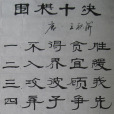 围棋十决
唐 王积薪
一不得贪胜
二入界宜缓
三攻彼顾我
四弃子争先